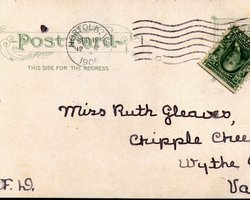 Post Card
THIS SIDE FOR THE ADDRESS.
NORFOLK,
190
Miss Ruth Gleaves,
Chipple Cree
Wythe C
Va
F. D.